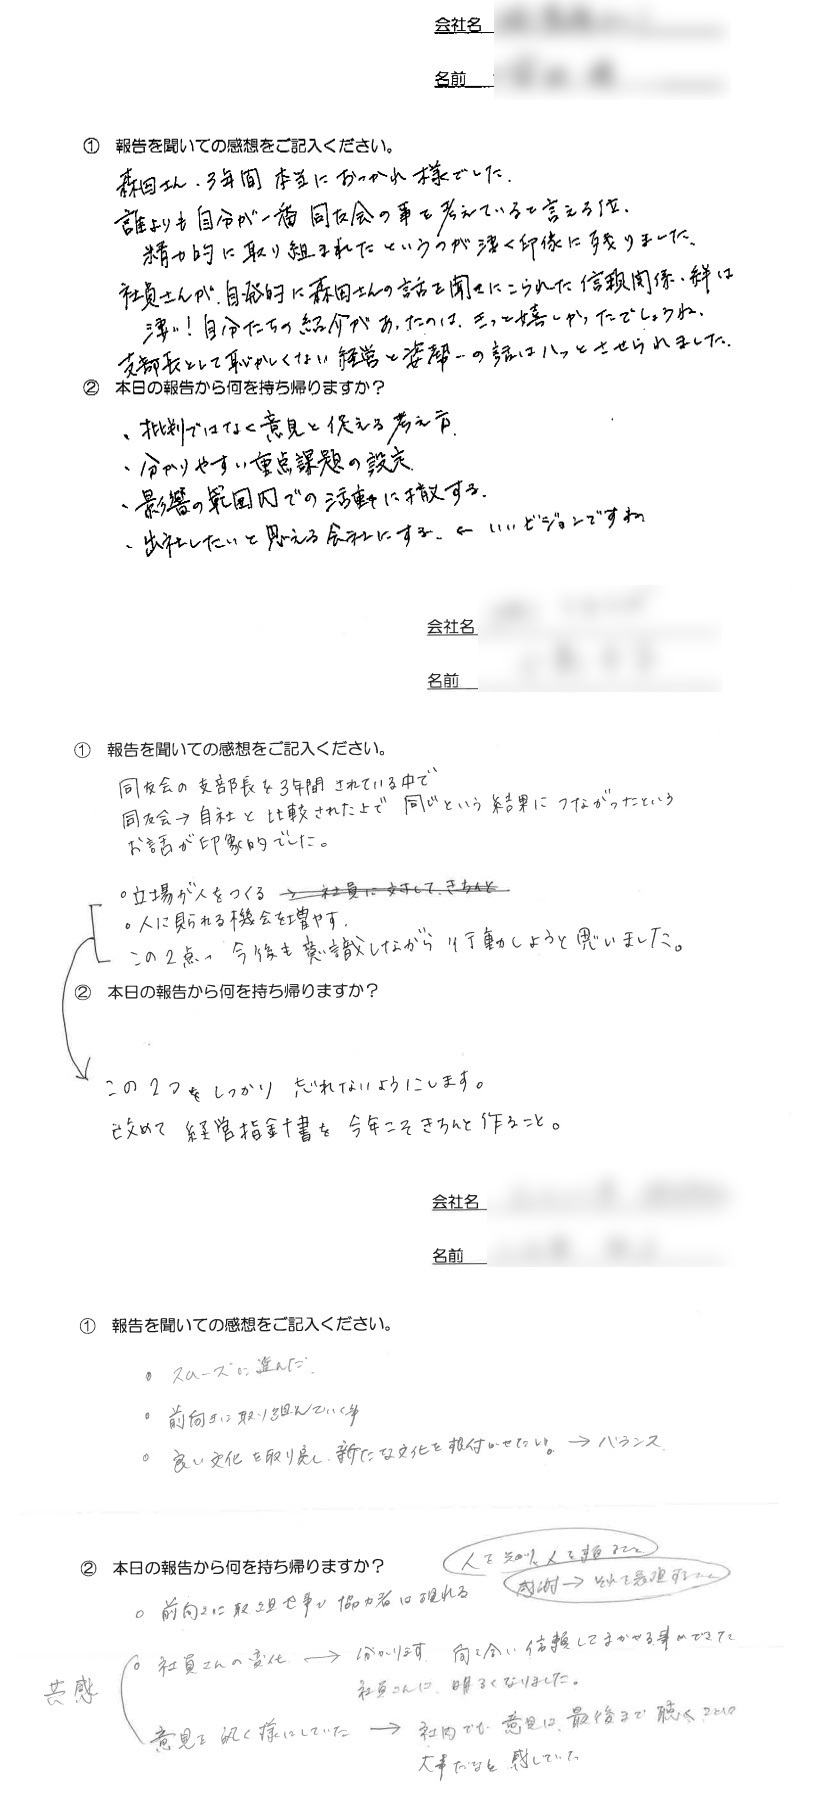 会社名
名前
① 報告を聞いての感想をご記入ください。
森田さん、3年間 本当におつかれ様でした。
誰よりも自分が一番同友会の事を考えていると言える位、
精力的に取り組まれたというのが凄く印象に残りました。
社員さんが、自発的に森田さんの話を聞きにこられた信頼関係・絆は
凄い！自分たちの紹介があったのは、きっと嬉しかったでしょうね。
支部長として恥かしくない経営と姿勢…の話はハッとさせられました。
② 本日の報告から何を持ち帰りますか？
・批判ではなく意見と捉える考え方
・分かりやすい重点課題の設定
・影響の範囲内での活動に徹する。
・出社したいと思える会社にする。 ← いいビジョンですね
会社名
名前
① 報告を聞いての感想をご記入ください。
同友会の支部長を3年間されている中で
同友会→自社と比較された上で 同じという結果につながったという
お話が印象的でした。
○立場が人をつくる → 社員に対して、きちんと
○人に見られる機会を増やす。
この2点 今後も意識しながら 行動しようと思いました。
② 本日の報告から何を持ち帰りますか？
この2つをしっかり 忘れないようにします。
改めて 経営指針書を 今年こそきちんと作ること。
会社名
名前
① 報告を聞いての感想をご記入ください。
○ スムーズに進んだ。
○ 前向きに取り組んでいく事
○ 良い文化を取り戻し、新たな文化を根付かせたい。→ バランス
② 本日の報告から何を持ち帰りますか？
人を知り、人を
感謝→ それを表現すること
○ 前向きに取組む事で 協力者は現れる
共感
○ 社員さんの変化 → 分かります。向き合い信頼してまかせる事ができたと
社員さんに、明るくなりました。
意見を訊く様にしていた → 社内でも意見は、最後まで聴くことは
大事だなと 感じていた